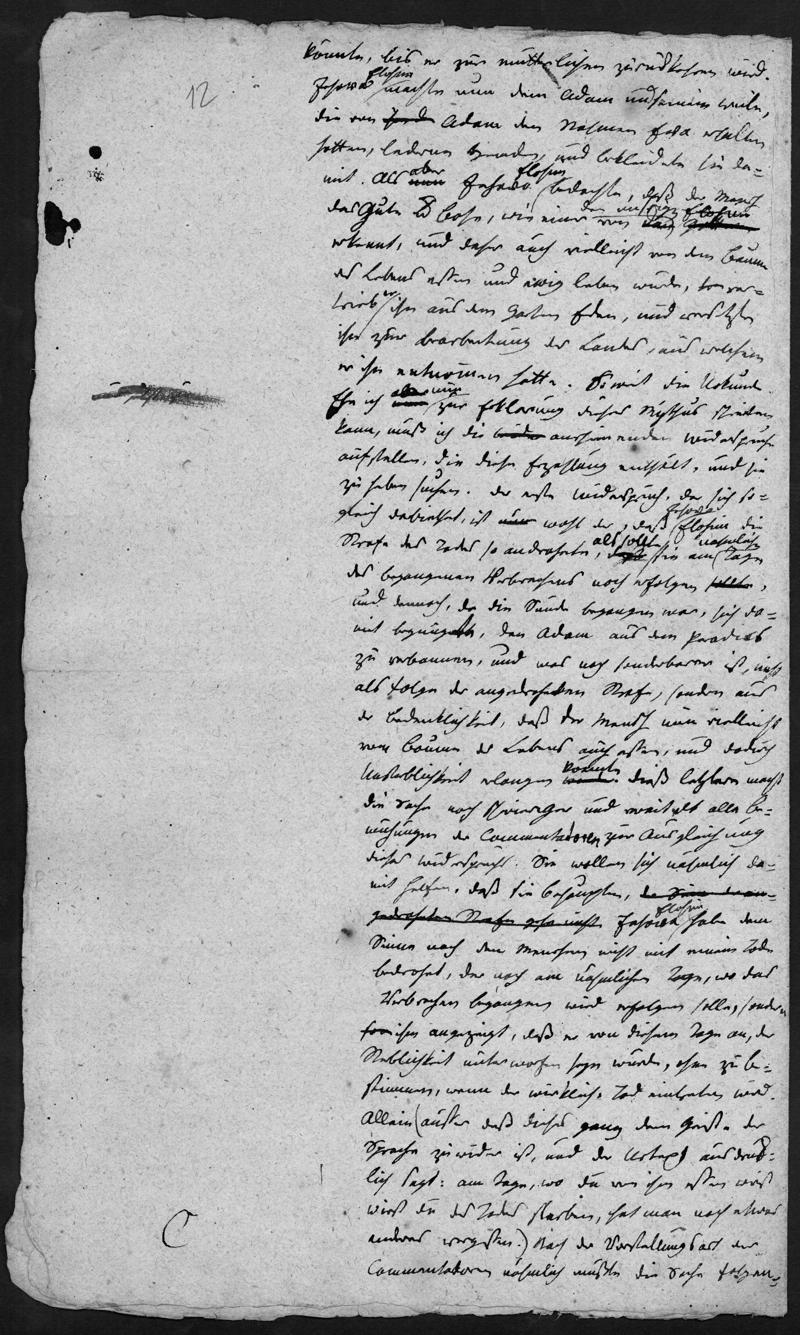 12
könnte, bis er zur mütterlichen zurückkehren wird.
Jehova Elohim machte nun dem Adam und seinem Weibe,
die von Adam den Nahmen Heva erhalten
hatten, lederne Hemden, und bekleidete sie da-
mit. Als aber Jehova Elohim bedachte, daß der Mensch
das Gute u Böse, wie einer von den Elohim
erkennt, und daher auch vielleicht von dem Baume
des Lebens essen und ewig leben würde, so ver-
trieb er ihn aus dem Garten Eden, und versetzte
ihn zur Bearbeitung des Landes, aus welchem
er ihn entnommen hatte. Soweit die Urkunde
Ehe ich nun zur Erklärung dieses Mythus schreiten
kann, muß ich die anscheinenden Widersprüche
aufstellen, die diese Erzählung enthält, und sie
zu heben suchen. Der erste Widerspruch, der sich so-
gleich darbiethet, ist wohl der, daß Jehova Elohim die
Strafe des Todes so androhete, als sollte sie am nähmlichen Tage
des begangenen Verbrechens noch erfolgen,
und dennoch, da die Sünde begangen war, sich da-
mit begnügte, den Adam aus dem Paradies
zu verbannen, und was noch sonderbarer ist, nicht
als Folge der angedroheten Strafe, sondern aus
der Bedenklichkeit, daß der Mensch nun vielleicht
vom Baume des Lebens auch essen, und dadurch
Unsterblichkeit erlangen könnte. Dieß letztere macht
die Sache noch schwieriger und vereitelt alle Be-
mühungen der Commentatoren zur Ausgleichung
dieses Widerspruchs. Sie wollen sich nähmlich da-
mit helfen, daß sie behaupten,
Jehova Elohim habe dem
Sinne nach dem Menschen nicht mit einem Tode
bedrohet, der noch am nähmlichen Tage, wo das
Verbrechen begangen wird erfolgen solle, sondern
ihm angezeigt, daß er von diesem Tage an, der
Sterblichkeit unterworfen seyn würde, ohne zu be-
stimmen, wenn der wirkliche Tod eintreten wird.
Allein (außer daß dieses ganz dem Geiste der
Sprache zuwider ist, und der Urtext ausdrück-
lich sagt: am Tage, wo du von ihm essen wirst
wirst du des Todes sterben, hat man noch etwas
anderes vergessen.) Nach der Vorstellungsart der
Commentatoren nähmlich müßte die Sache folgen-